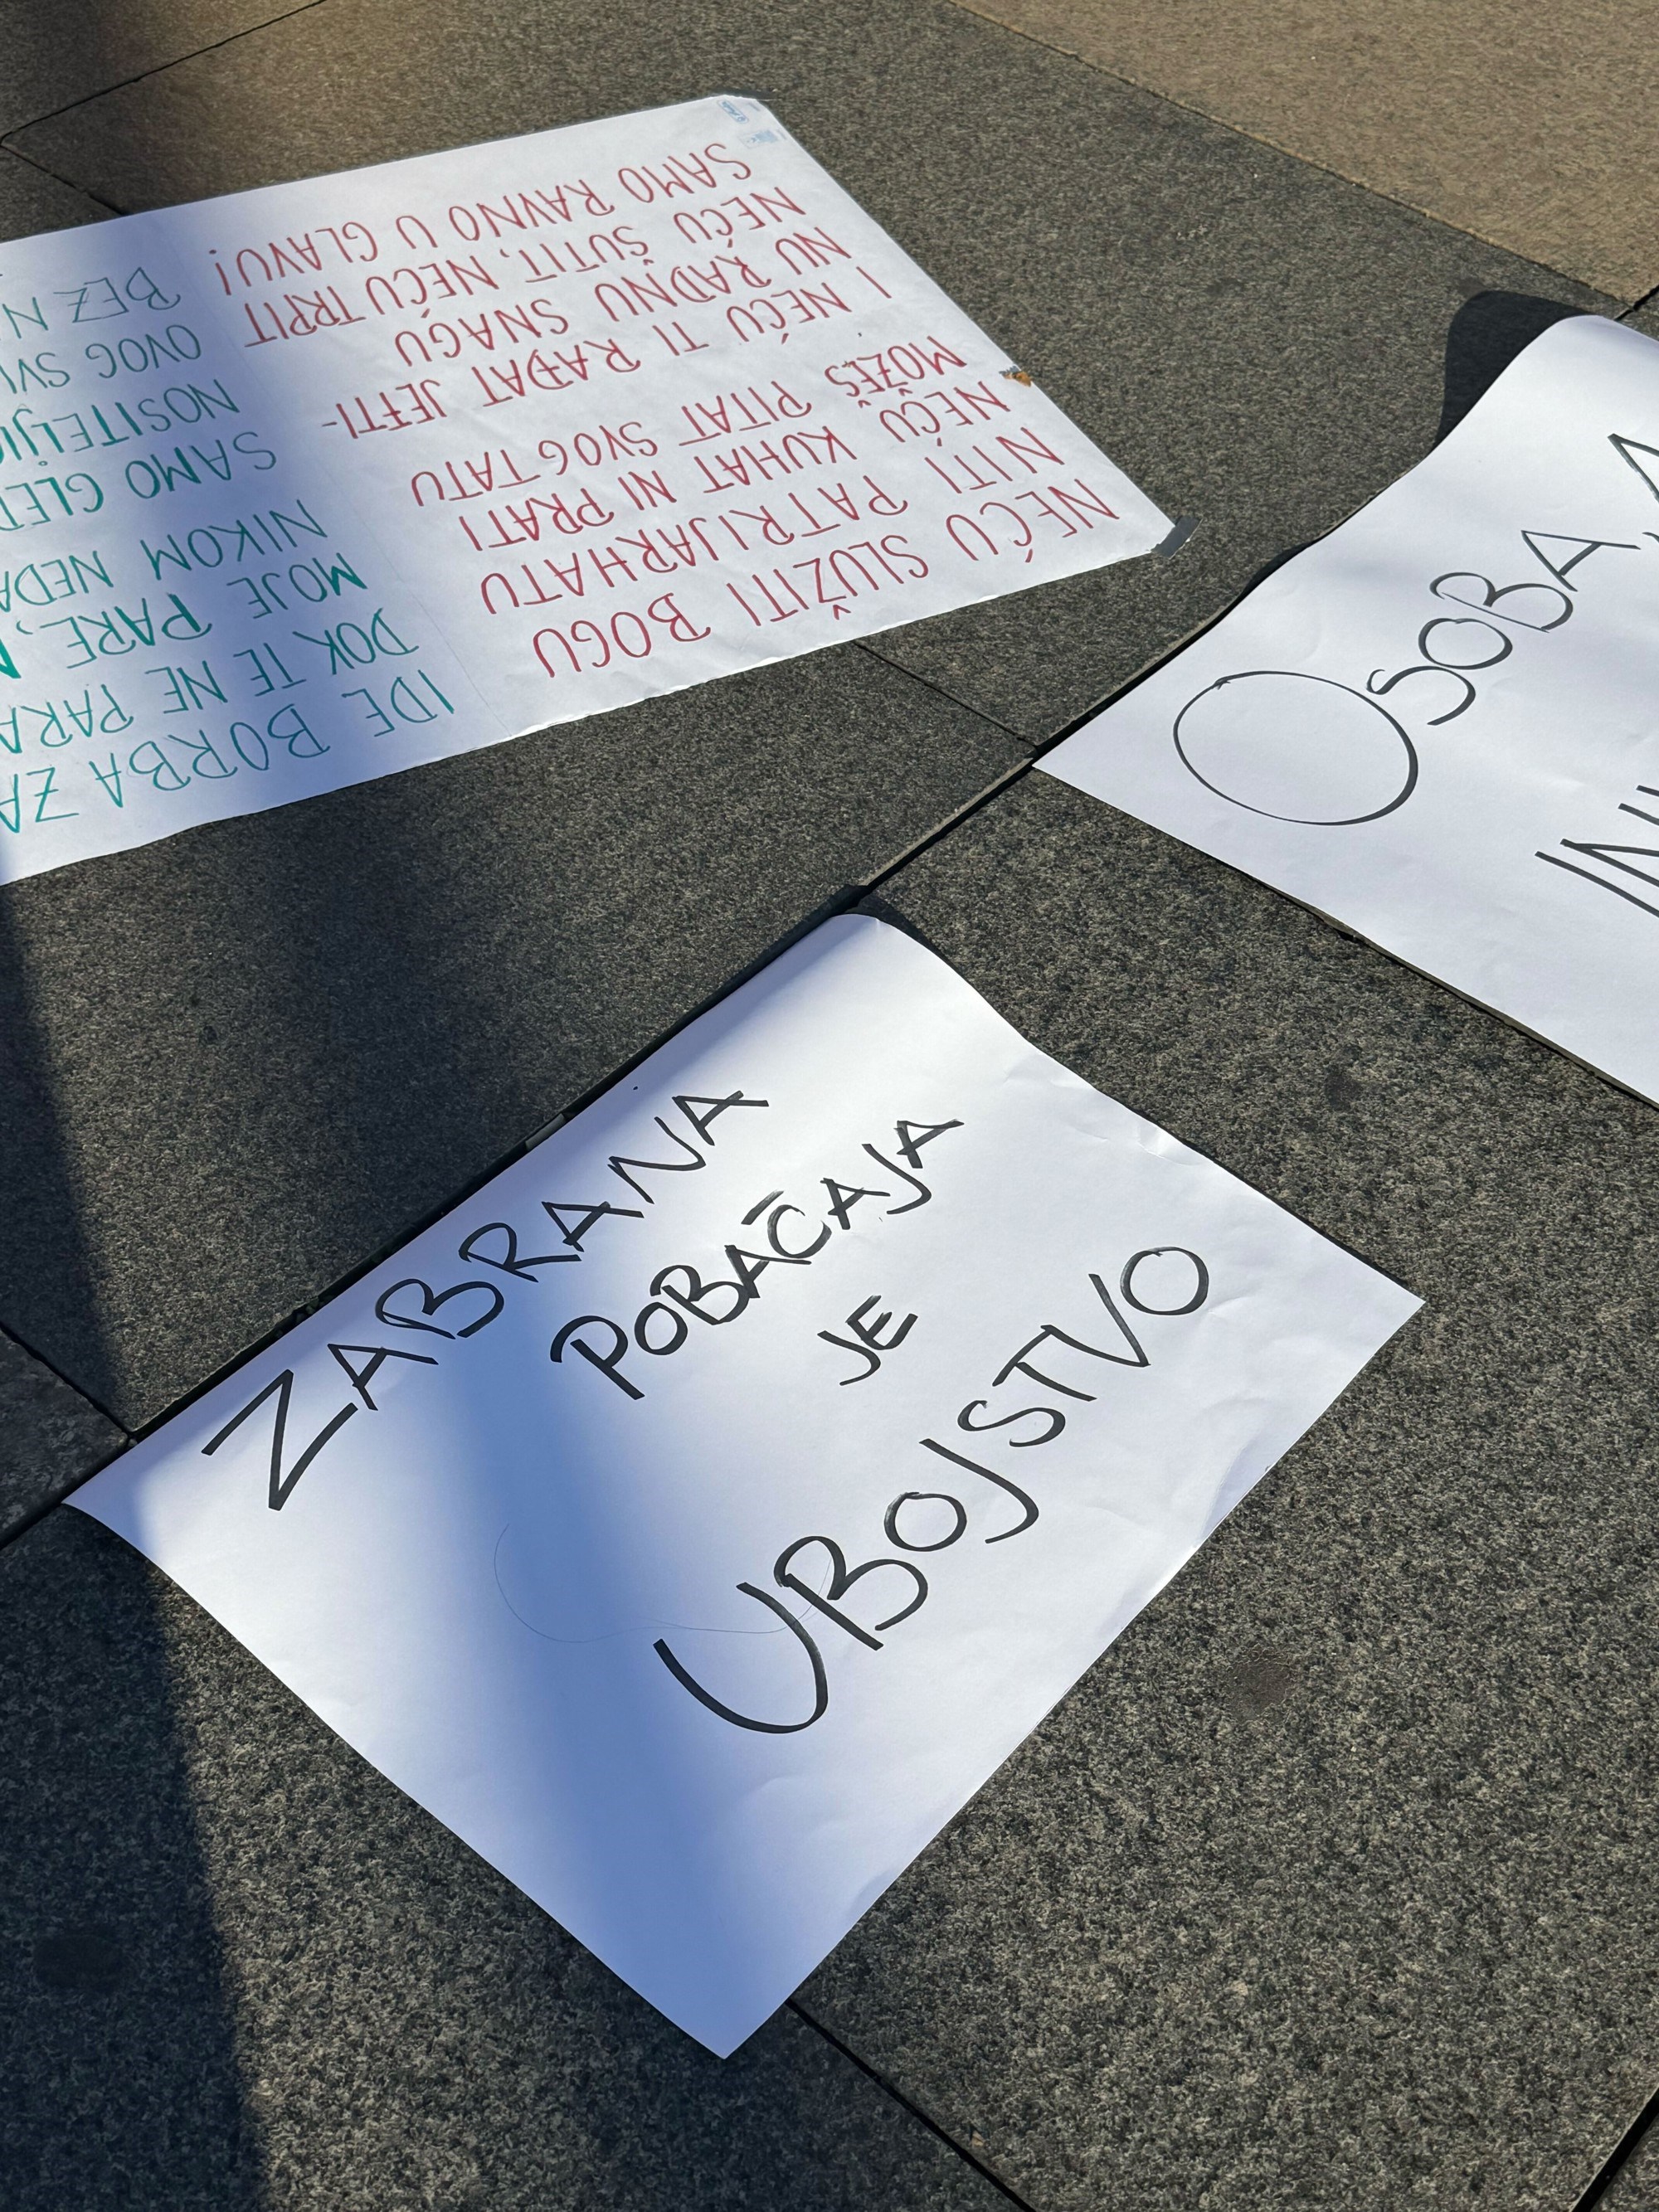 NEĆU SLUŽITI BOGU
NITI PATRIJARHATU
NEĆU KUHAT NI PRATI
MOŽEŠ PITAT SVOG TATU
I NEĆU TI RAĐAT JEFTI-
NU RADNU SNAGU
NEĆU ŠUTIT, NEĆU TRPIT
SAMO RAVNO U GLAVU!
IDE BORBA ZA
DOK TE NE
MOJE PARE,
NIKOM
SAMO
OVOG
BEZ
OSOBA
ZABRANA
POBAČAJA
JE
UBOJSTVO